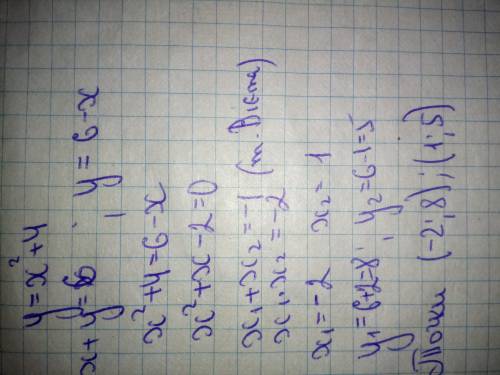 y = x² + 4
x + y = 6 ; y = 6 - x
x² + 4 = 6 - x
x² + x - 2 = 0
x₁ + x₂ = -1 (т. Вієта)
x₁ · x₂ = -2
x₁ = -2 x₂ = 1
y₁ = 6 + 2 = 8 ; y₂ = 6 - 1 = 5
Точки (-2; 8); (1; 5)